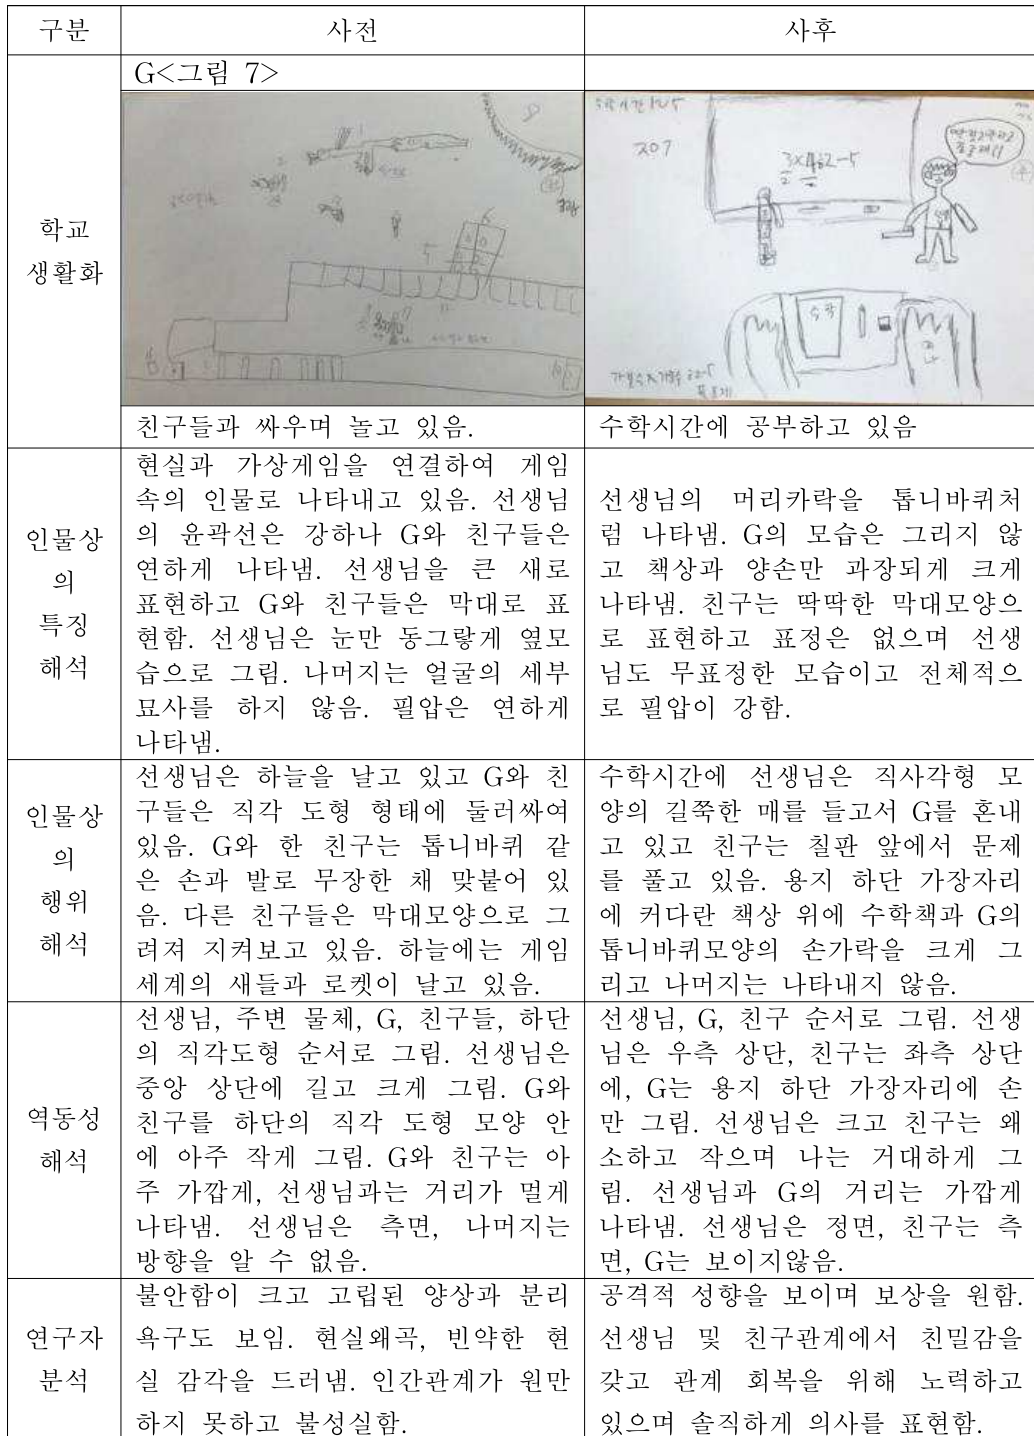 구분
사전
사후
G<그림 7>
학교
생활화
수학시간
207
수학
친구들과 싸우며 놀고 있음.
수학시간에 공부하고 있음
인물상
의
특징
해석
현실과 가상게임을 연결하여 게임
속의 인물로 나타내고 있음. 선생님
의 윤곽선은 강하나 G와 친구들은
연하게 나타냄. 선생님을 큰 새로
표현하고 G와 친구들은 막대로 표
현함. 선생님은 눈만 동그랗게 옆모
습으로 그림. 나머지는 얼굴의 세부
묘사를 하지 않음. 필압은 연하게
나타냄.
선생님의 머리카락을 톱니바퀴처
럼 나타냄. G의 모습은 그리지 않
고 책상과 양손만 과장되게 크게
나타냄. 친구는 딱딱한 막대모양으
로 표현하고 표정은 없으며 선생
님도 무표정한 모습이고 전체적으
로 필압이 강함.
인물상
의
행위
해석
선생님은 하늘을 날고 있고 G와 친
구들은 직각 도형 형태에 둘러싸여
있음. G와 한 친구는 톱니바퀴 같
은 손과 발로 무장한 채 맞붙어 있
음. 다른 친구들은 막대모양으로 그
려져 지켜보고 있음. 하늘에는 게임
세계의 새들과 로켓이 날고 있음.
수학시간에 선생님은 직사각형 모
양의 길쭉한 매를 들고서 G를 혼내
고 있고 친구는 칠판 앞에서 문제
를 풀고 있음. 용지 하단 가장자리
에 커다란 책상 위에 수학책과 G의
톱니바퀴모양의 손가락을 크게 그
리고 나머지는 나타내지 않음.
역동성
해석
선생님, 주변 물체, G, 친구들, 하단
의 직각도형 순서로 그림. 선생님은
중앙 상단에 길고 크게 그림. G와
친구를 하단의 직각 도형 모양 안
에 아주 작게 그림. G와 친구는 아
주 가깝게, 선생님과는 거리가 멀게
나타냄. 선생님은 측면, 나머지는
방향을 알 수 없음.
선생님, G, 친구 순서로 그림. 선생
님은 우측 상단, 친구는 좌측 상단
에, G는 용지 하단 가장자리에 손
만 그림. 선생님은 크고 친구는 왜
소하고 작으며 나는 거대하게 그
림. 선생님과 G의 거리는 가깝게
나타냄. 선생님은 정면, 친구는 측
면, G는 보이지않음.
연구자
분석
불안함이 크고 고립된 양상과 분리
욕구도 보임. 현실왜곡, 빈약한 현
실 감각을 드러냄. 인간관계가 원만
하지 못하고 불성실함.
공격적 성향을 보이며 보상을 원함.
선생님 및 친구관계에서 친밀감을
갖고 관계 회복을 위해 노력하고
있으며 솔직하게 의사를 표현함.